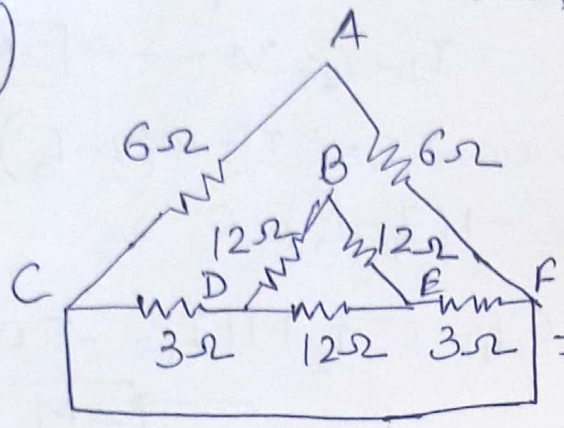 )
A
6Ω 6Ω
B
12Ω 12Ω
C D E F
3Ω 12Ω 3Ω =